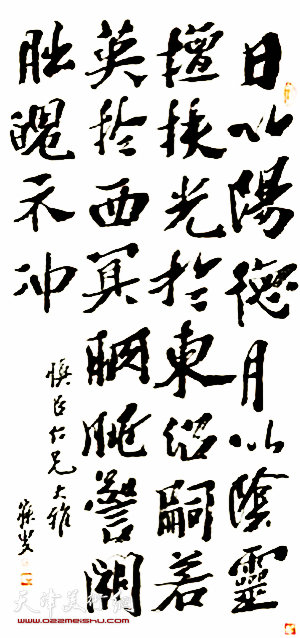 日以陽德月以陰靈
擅扶光於東沼嗣若
英於西冥朒朓警闕
朏魄示冲
慎臣仁兄大雅
寐叟
天津美术网
www.022meishu.com